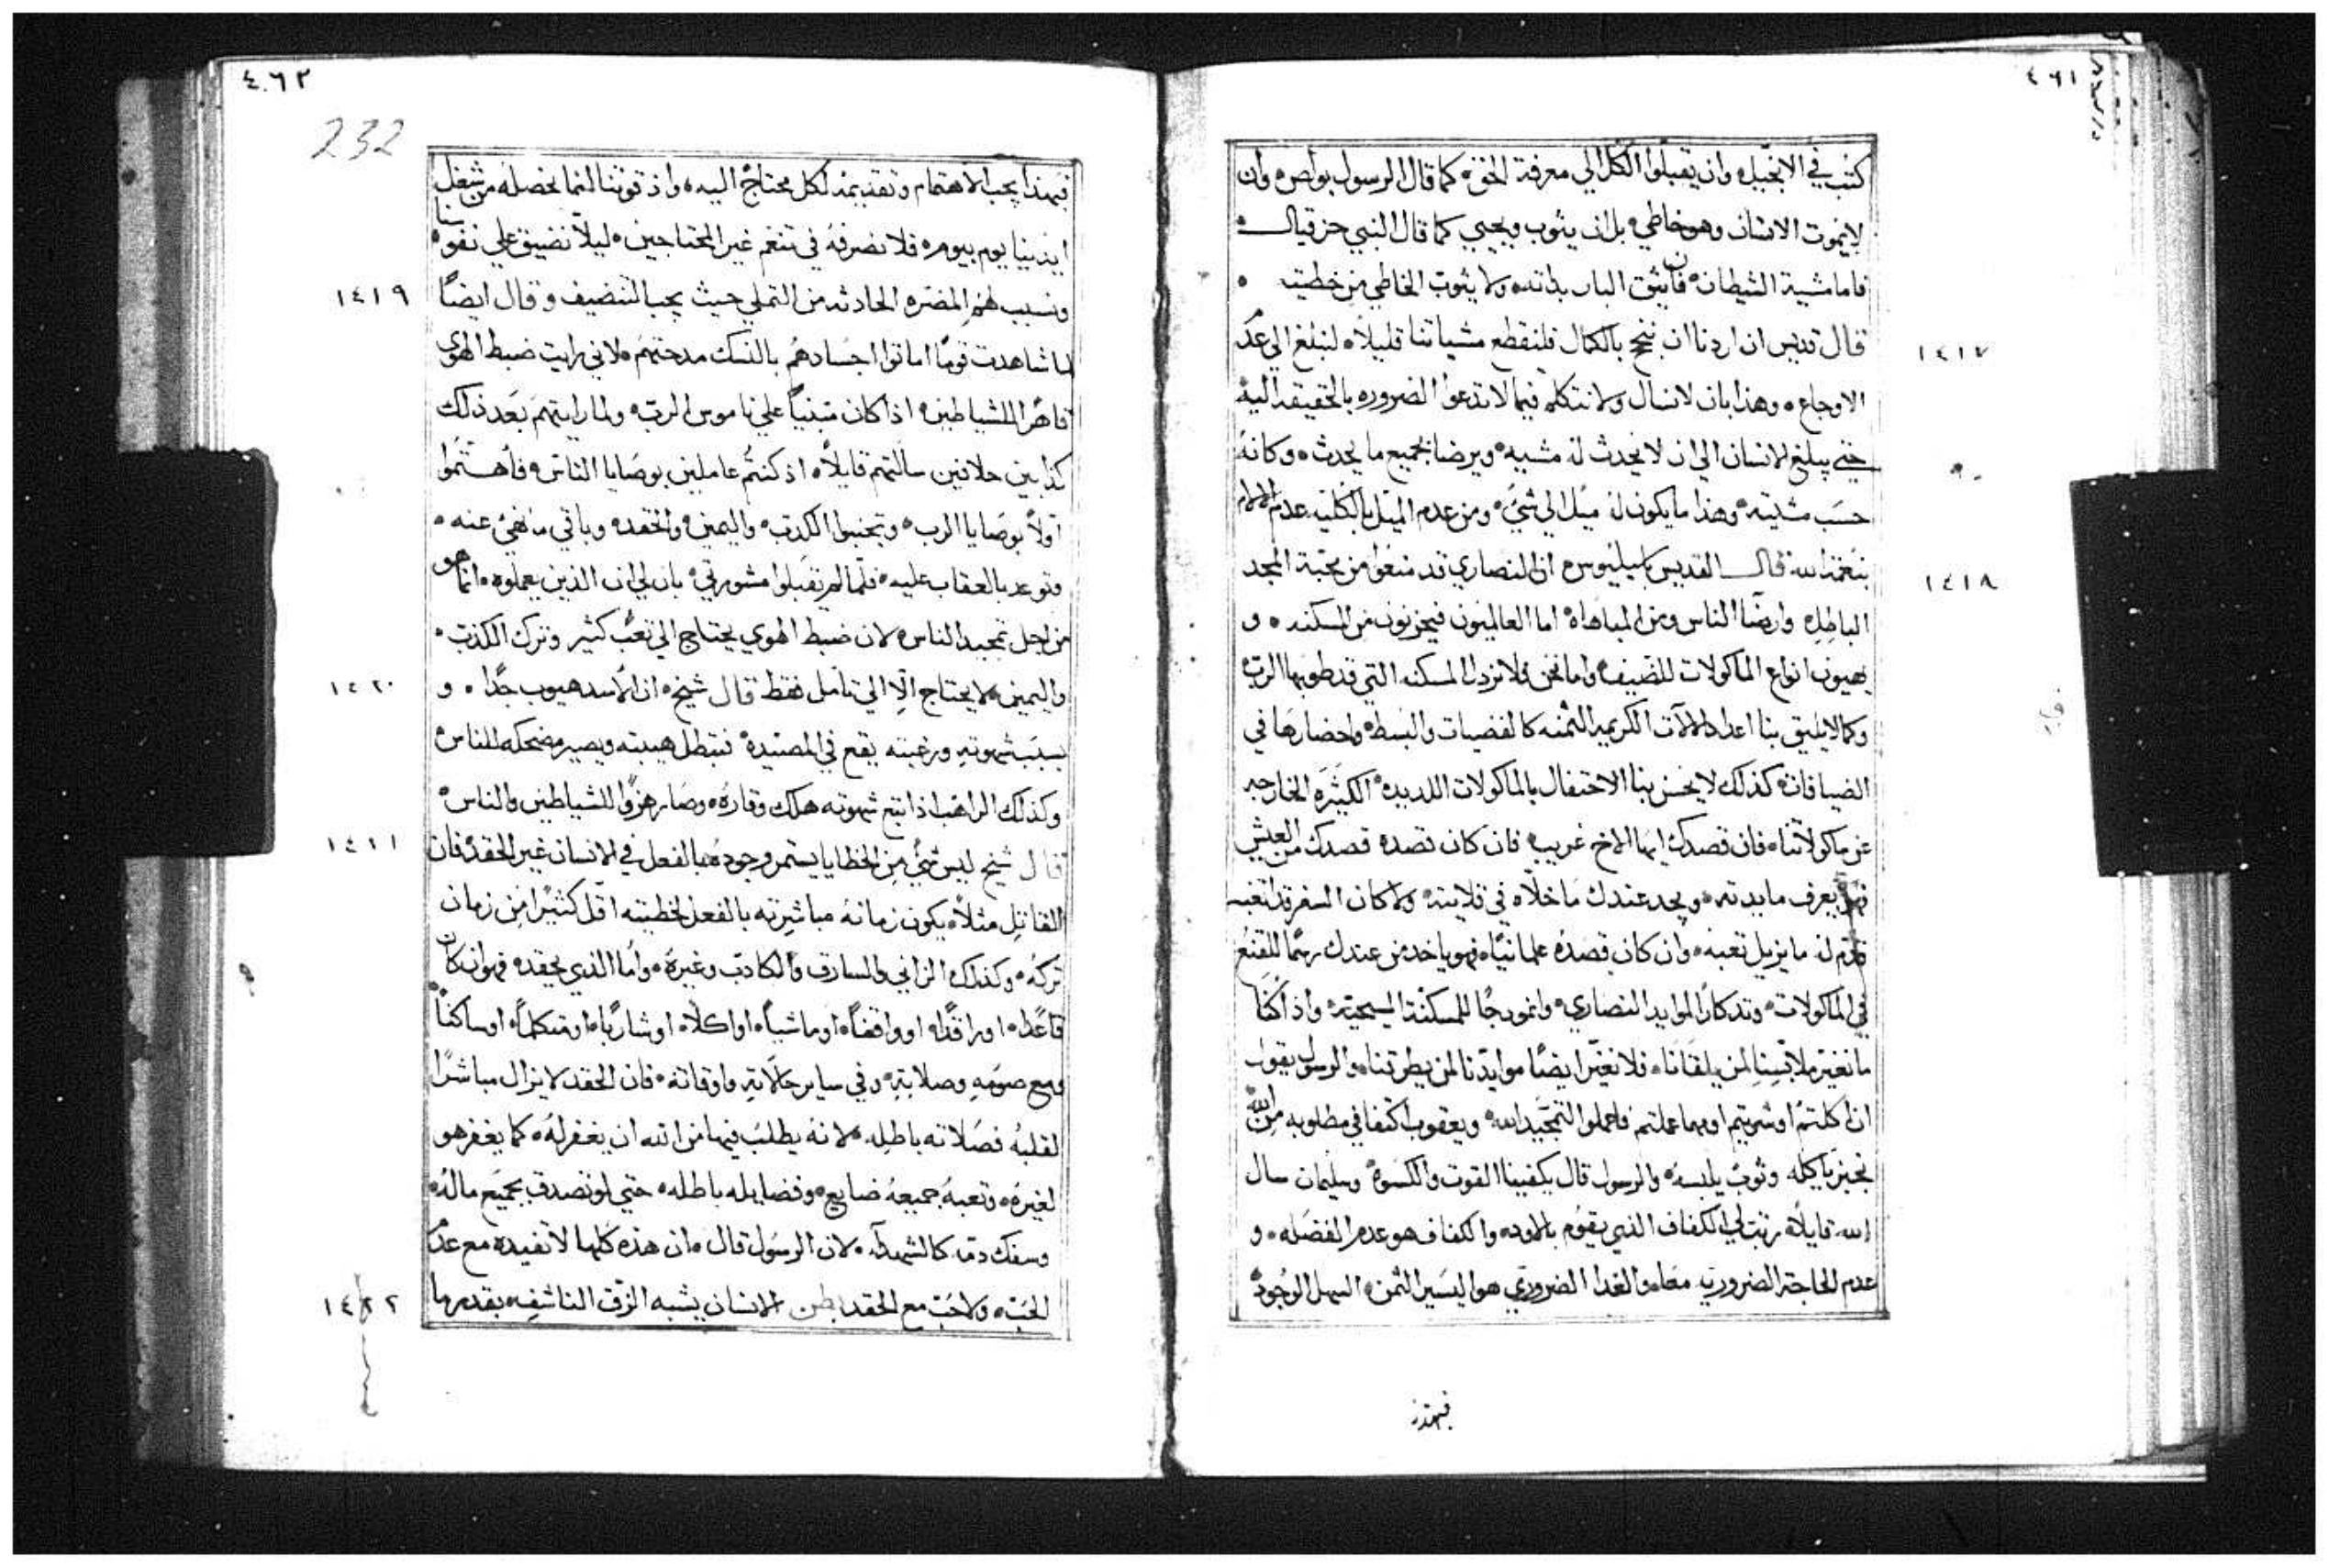 ٤٦١
كتب في الانجيل ه وان يقبلوا الكل الي معرفة الحق ه كما قال الرسول بولص ه وان
لا يموت الانسان وهو خاطي ه بل ان يتوب ويحيي كما قال النبي حزقيال ه
فاما مشية الشيطان ه فان يثق البار بذاته ه ولا يتوب الخاطي من خطيته ه
١٤١٧
قال قديس ان اردنا ان ننجح بالكمال فلنقطع مشياتنا قليلاً ه لنبلغ الي عدم
الاوجاع ه وهذا بان لا نسال ولا نتكلم فيما لا تدعوا الضروره بالحقيقه اليه
حتي يبلغ الانسان الي ان لا يحدث له مشيه ه ويرضا بجميع ما يحدث ه وكانهُ
حسَب مشيته ه وهذا ما يكون لهُ ميل الي شيُ ه ومن عدم الميل بالكليه عدم الالام
١٤١٨
بنعمة الله قال القديس باسيليوس ه ان النصاري قد منعوا من محبة المجد
الباطل ه وارضا الناس ومن المباهاه ه اما العالميون فيحزنون من المسكنه ه و
يهيون انواع الماكولات للضيف ه واما نحن فلا نرذل المسكنه التي قد طوبها الرب ه
وكما لا يليق بنا اعداد الالات الكريمه الثمنه كالفضيات والبسط ه واحضارها في
الضيافات ه كذلك لا يحسن بنا الاحتفال بالماكولات اللديده ه الكثيره الخارجه
عن ماكولاتنا ه فان قصدك ايها الاخ غريب ه فان كان قصده قصدك من العيش
فهو يعرف مايدته ه ويجد عندك ما خلاه في قلايته ه ولا كان السفر قد اتعبه
قدم له ما يزيل تعبه ه وان كان قصدهُ علمانيًا ه فهو ياخد من عندك رسمًا للقنع
في الماكولات ه وتدكارًا لموايد النصاري ه وانمودجًا للمسكنة المسيحية ه واذا كنا
ما نغير ملابسنا لمن يلقانا ه فلا نغير ايضًا موايدنا لمن يطرقنا ه والرسول يقول
ان اكلتم او شربتم او مهما عملتم فاعملوا لتمجيد الله ه ويعقوب اكتفا في مطلوبه من الله
بخبز ياكله وثوب يلبسهُ ه والرسول قال يكفينا القوت والكسوه ه وسليمان سال
الله قايلاً ه رتب لي الكفاف الذي يقوم بالاود ه والكفاف هو عدم الفضله ه و
عدم الحاجة الضرورية معًا ه والغدا الضروري هو اليسير الثمن ه السهل الوجود ه
فبهذا
٤٦٢
232
فبهذا يجب الاهتمام وتقديمه لكل محتاج اليه ه واذ قوتنا انما نحصله من شغل
ايدينا يوم بيوم ه فلا نصرفهُ في تنعم غير المحتاجين ه ليلاّ نضيق علي نفوسنا ه
١٤١٩
ونسبب لهم المضره الحادثه من التملي حيث يجب التنضيف وقال ايضًا
لما شاهدت قومًا اماتوا اجسادهُم بالنسك مدحتهم ه لاني رايت ضبط الهوي
قاهرًا للشياطين ه اذا كان مبنياً علي ناموس الرب ه ولما رايتهم بعد ذلك
كذابين حلافين سالتهم قايلاً ه اذ كنتُم عاملين بوصايا الناس ه فاهتموا
اولاً بوصايا الرب ه وتجنبوا الكذب ه واليمين ه والحقد ه وباقي ما نهي عنه ه
وتوعد بالعقاب عليه ه فلما لم تقبلوا مشورتي ه بان لي ان الذين يعملوه ه انما هو
من اجل تمجيد الناس ه لان ضبط الهوي يحتاج الي تعب كثير وترك الكذب ه
١٤٢٠
واليمين ه لا يحتاج الّا الي تامل فقط قال شيخ ه ان الاسد هيوب جدًا ه و
بسبب شهوته ورغبته يقع في المصيده ه فتبطل هيبته ويصير مضحكه للناس ه
وكذلك الراهب اذا تبع شهوته هلك وقارهُ ه وصار هزوًا للشياطين والناس ه
١٤٢١
قال شيخ ليس شيُ من الخطايا يستمر وجودهُ بالفعل في الانسان غير الحقد ه فان
القاتل مثلاً ه يكون زمانهُ مباشرته بالفعل لخطيته اقل كثيرًا من زمان
تركهُ ه وكذلك الزاني والسارق والكادب وغيرهُ ه واما الذي يحقد ه فهو ان كان
قاعدًا ه او راقدًا ه او واقفاً ه او ماشياً ه او اكلاً ه او شاربًا ه او متكلماً ه او ساكتاً ه
ومع صومهِ وصلاتهِ ه وفي ساير حالاتهِ واوقاته ه فان الحقد لا يزال مباشرًا
لقلبهُ فصلاته باطله ه لانهُ يطلب فيها من الله ان يغفر لهُ ه كما يغفر هو
لغيره ه وتعبهُ جميعهُ ضايع ه وفضايله باطله ه حتي لو تصدق بجميع مالهُ ه
وسفك دمه كالشهدآ ه لان الرسول قال ه ان هذه كلها لا تفيده مع عدم
١٤٢٢
الحب ه ولا حب مع الحقد بطن الانسان يشبه الزق الناشف ه بقدر ما